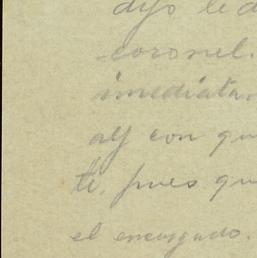 dijo le d
coronel.
inmediatam
con qu
te, pues qu
el encargado.